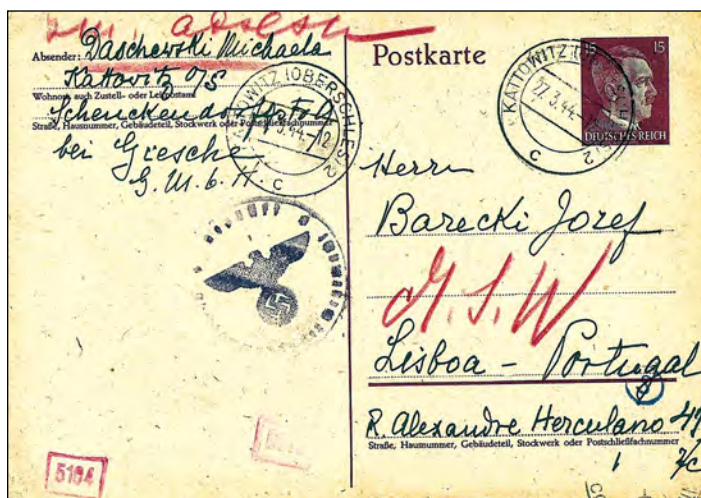 Absender: Daschewski Michaela
Kattowitz O/S
Wohnort, auch Zustell- oder Leitpostamt
Straße, Hausnummer, Gebäudeteil, Stockwerk oder Postschließfachnummer
bei Giesche
G.M.b.H.
KATTOWITZ (OBERSCHLES) 2
27.3.44.-12
c
5104
Postkarte
KATTOWITZ
27.3.44.
c
2
15 15
DEUTSCHES REICH
Herrn
Barecki Jozef
M.S.W
Lisboa - Portugal
8
R. Alexandre Herculano 41
Straße, Hausnummer, Gebäudeteil, Stockwerk oder Postschließfachnummer